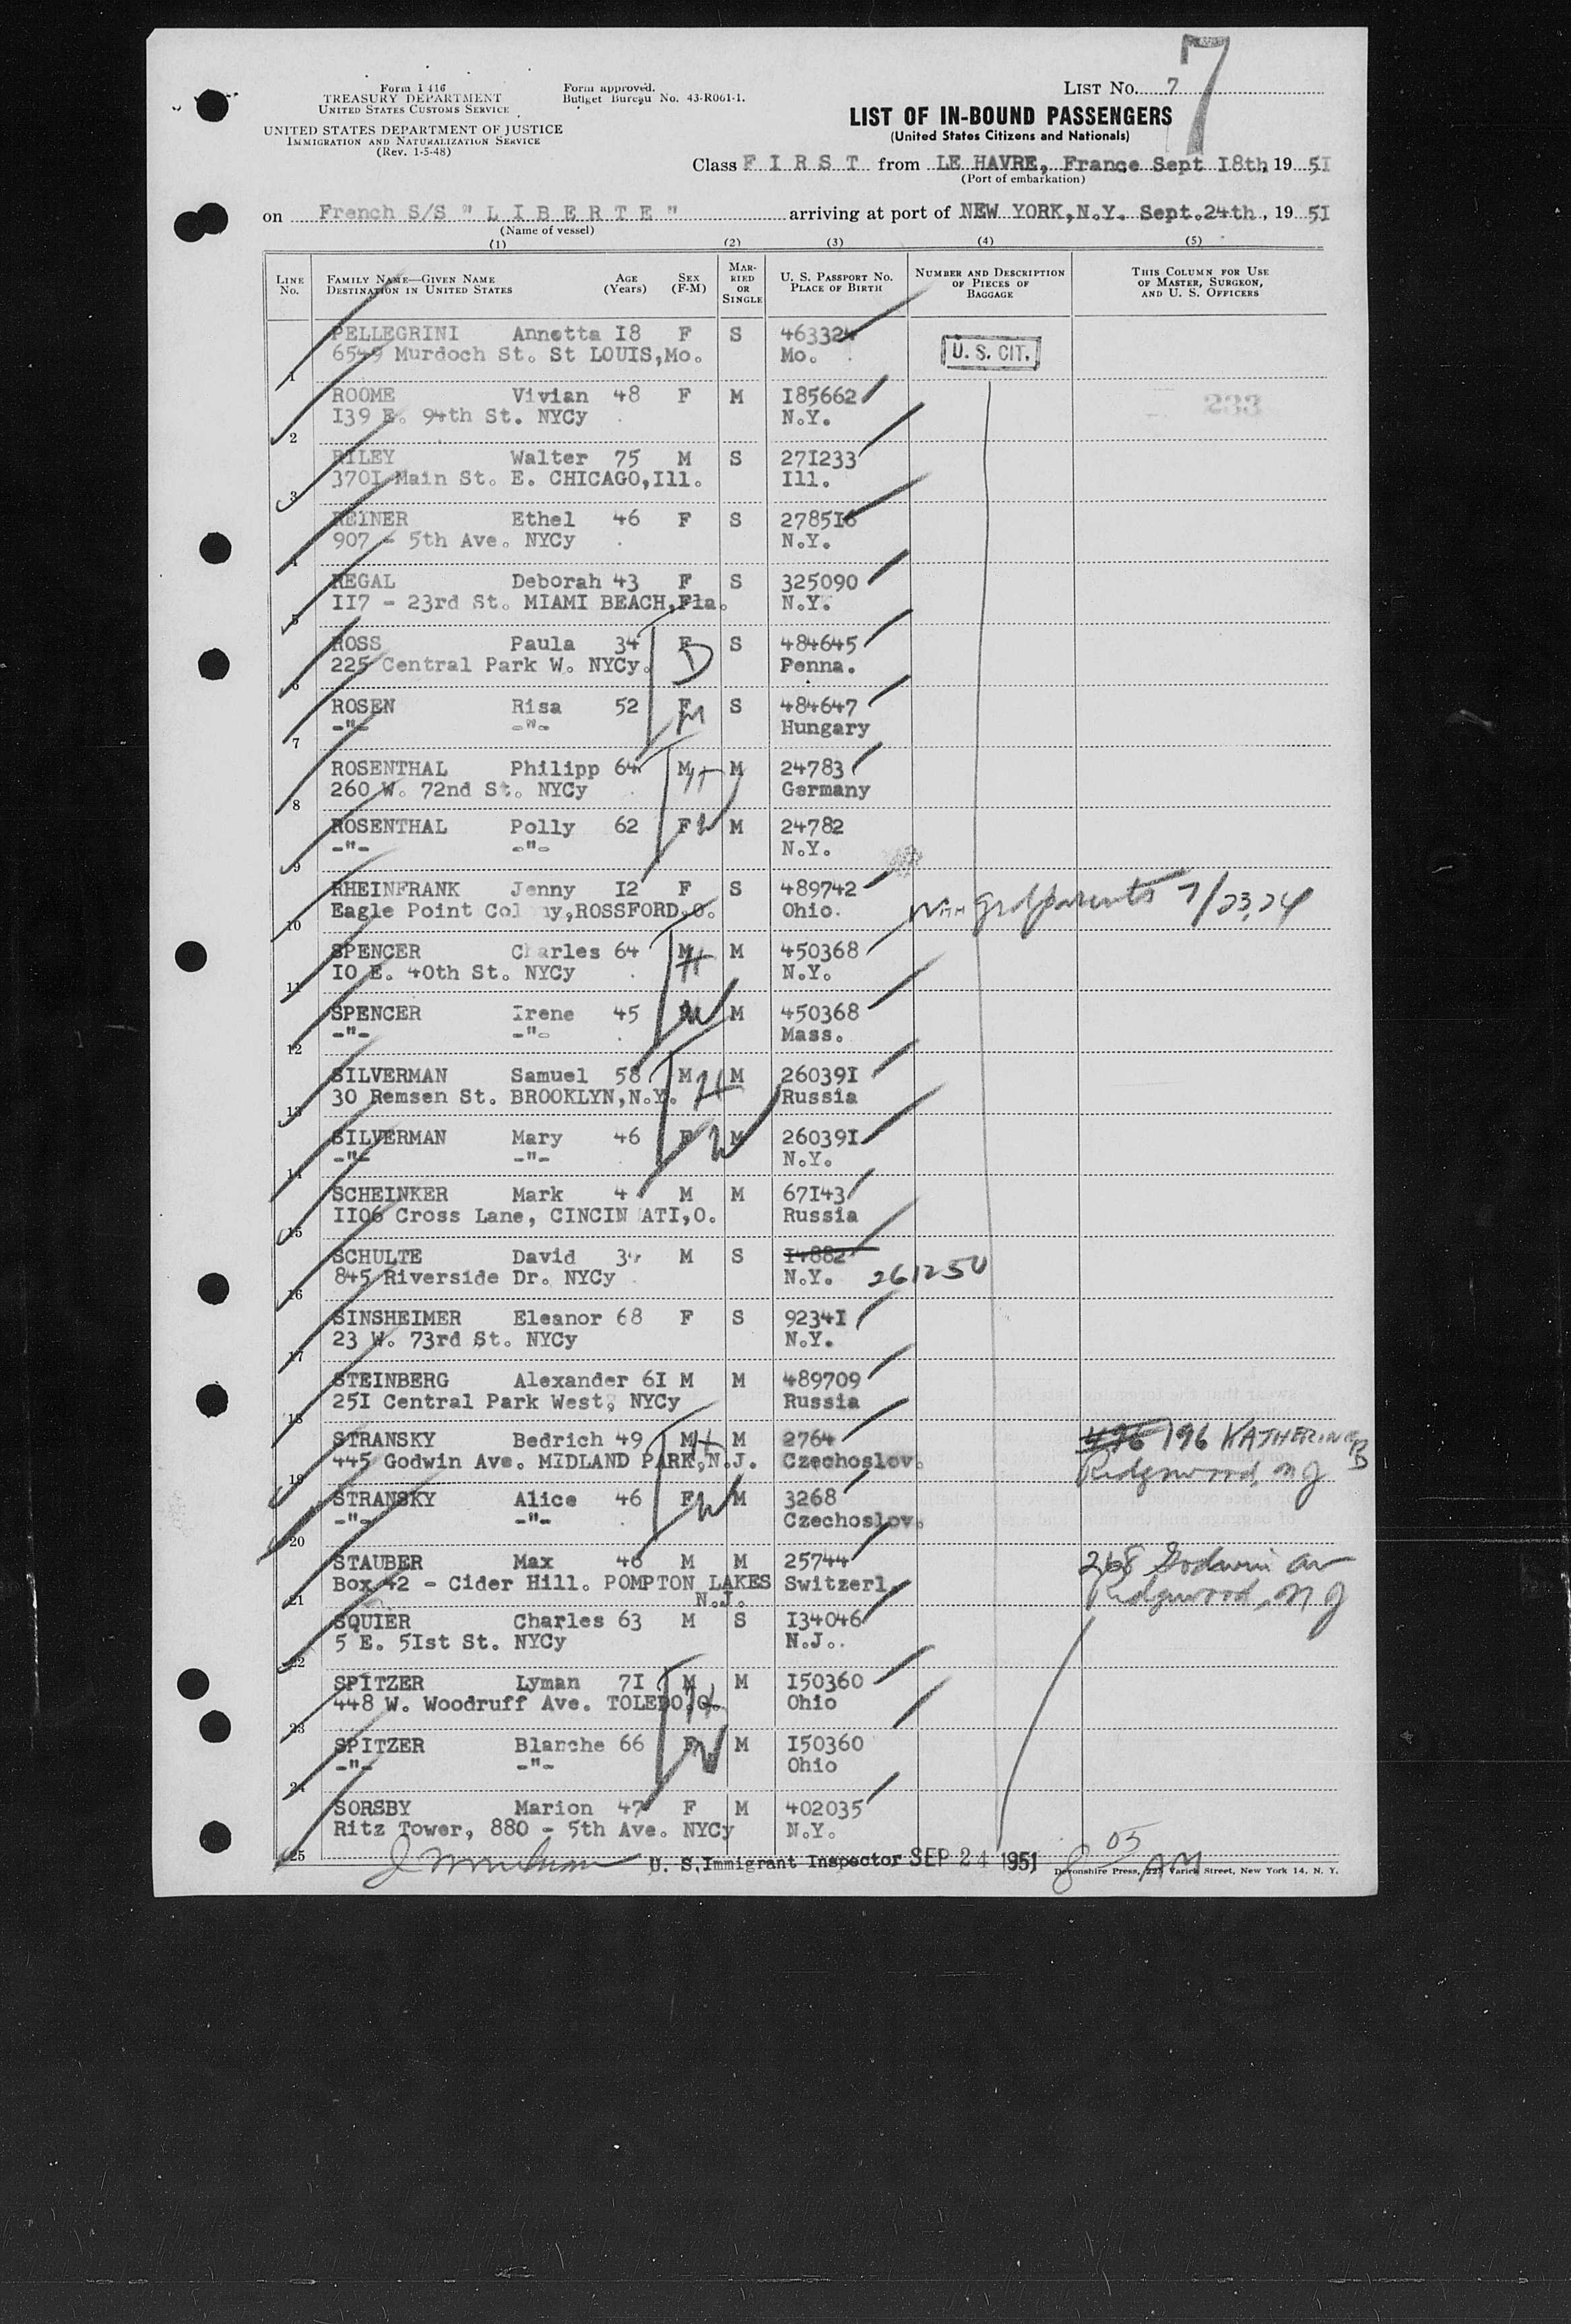 7
Form I 416
TREASURY DEPARTMENT
UNITED STATES CUSTOMS SERVICE
UNITED STATES DEPARTMENT OF JUSTICE
IMMIGRATION AND NATURALIZATION SERVICE
(Rev. 1-5-48)
Form approved.
Budget Bureau No. 43-R061-1.
LIST NO. 7
LIST OF IN-BOUND PASSENGERS
(United States Citizens and Nationals)
Class F I R S T from LE HAVRE, France Sept I8th, 19 5I
(Port of embarkation)
on French S/S " L I B E R T E " arriving at port of NEW YORK,N.Y. Sept.24th, 19 5I
(Name of vessel)
(1) (2) (3) (4) (5)
LINE No. FAMILY NAME—GIVEN NAME DESTINATION IN UNITED STATES AGE (Years) SEX (F-M) MARRIED OR SINGLE U. S. PASSPORT NO. PLACE OF BIRTH NUMBER AND DESCRIPTION OF PIECES OF BAGGAGE THIS COLUMN FOR USE OF MASTER, SURGEON, AND U. S. OFFICERS
PELLEGRINI Annetta I8 F S 463324
1 6549 Murdoch St. St LOUIS,Mo. Mo. U. S. CIT.
ROOME Vivian 48 F M I85662
2 I39 E. 94th St. NYCy N.Y. 233
RILEY Walter 75 M S 27I233
3 370I Main St. E. CHICAGO,Ill. Ill.
REINER Ethel 46 F S 2785I6
4 907 - 5th Ave. NYCy N.Y.
REGAL Deborah 43 F S 325090
5 II7 - 23rd St. MIAMI BEACH,Fla. N.Y.
ROSS Paula 34 F D S 484645
6 225 Central Park W. NYCy. Penna.
ROSEN Risa 52 F M S 484647
7 -"- -"- Hungary
ROSENTHAL Philipp 64 M H M 24783
8 260 W. 72nd St. NYCy Germany
ROSENTHAL Polly 62 F W M 24782
9 -"- -"- N.Y.
RHEINFRANK Jenny I2 F S 489742
10 Eagle Point Col ny,ROSSFORD.O. Ohio. With grdparents 7/23,24
SPENCER Charles 64 M H M 450368
11 I0 E. 40th St. NYCy N.Y.
SPENCER Irene 45 W M 450368
12 -"- -"- Mass.
SILVERMAN Samuel 58 M H M 26039I
13 30 Remsen St. BROOKLYN,N.Y. Russia
SILVERMAN Mary 46 F W M 26039I
14 -"- -"- N.Y.
SCHEINKER Mark 4 M M 67I43
15 II06 Cross Lane, CINCIN ATI,O. Russia
SCHULTE David 34 M S I4882
16 845 Riverside Dr. NYCy N.Y. 261250
SINSHEIMER Eleanor 68 F S 9234I
17 23 W. 73rd St. NYCy N.Y.
STEINBERG Alexander 6I M M 489709
18 25I Central Park West, NYCy Russia
STRANSKY Bedrich 49 M H M 2764 196 KATHERINE
19 445 Godwin Ave. MIDLAND PARK,N.J. Czechoslov. Ridgewood, N J
STRANSKY Alice 46 F W M 3268
20 -"- -"- Czechoslov.
STAUBER Max 46 M M 25744 268 Godwin av
21 Box 42 - Cider Hill. POMPTON LAKES N.J. Switzerl. Ridgewood, N J
SQUIER Charles 63 M S I34046
22 5 E. 5Ist St. NYCy N.J.
SPITZER Lyman 7I M H M I50360
23 448 W. Woodruff Ave. TOLEDO,O. Ohio
SPITZER Blanche 66 F W M I50360
24 -"- -"- Ohio
SORSBY Marion 47 F M 402035
25 Ritz Tower, 880 - 5th Ave. NYCy N.Y.
U. S. Immigrant Inspector SEP 24 1951 8 05 AM
Devonshire Press, 225 Varick Street, New York 14, N. Y.